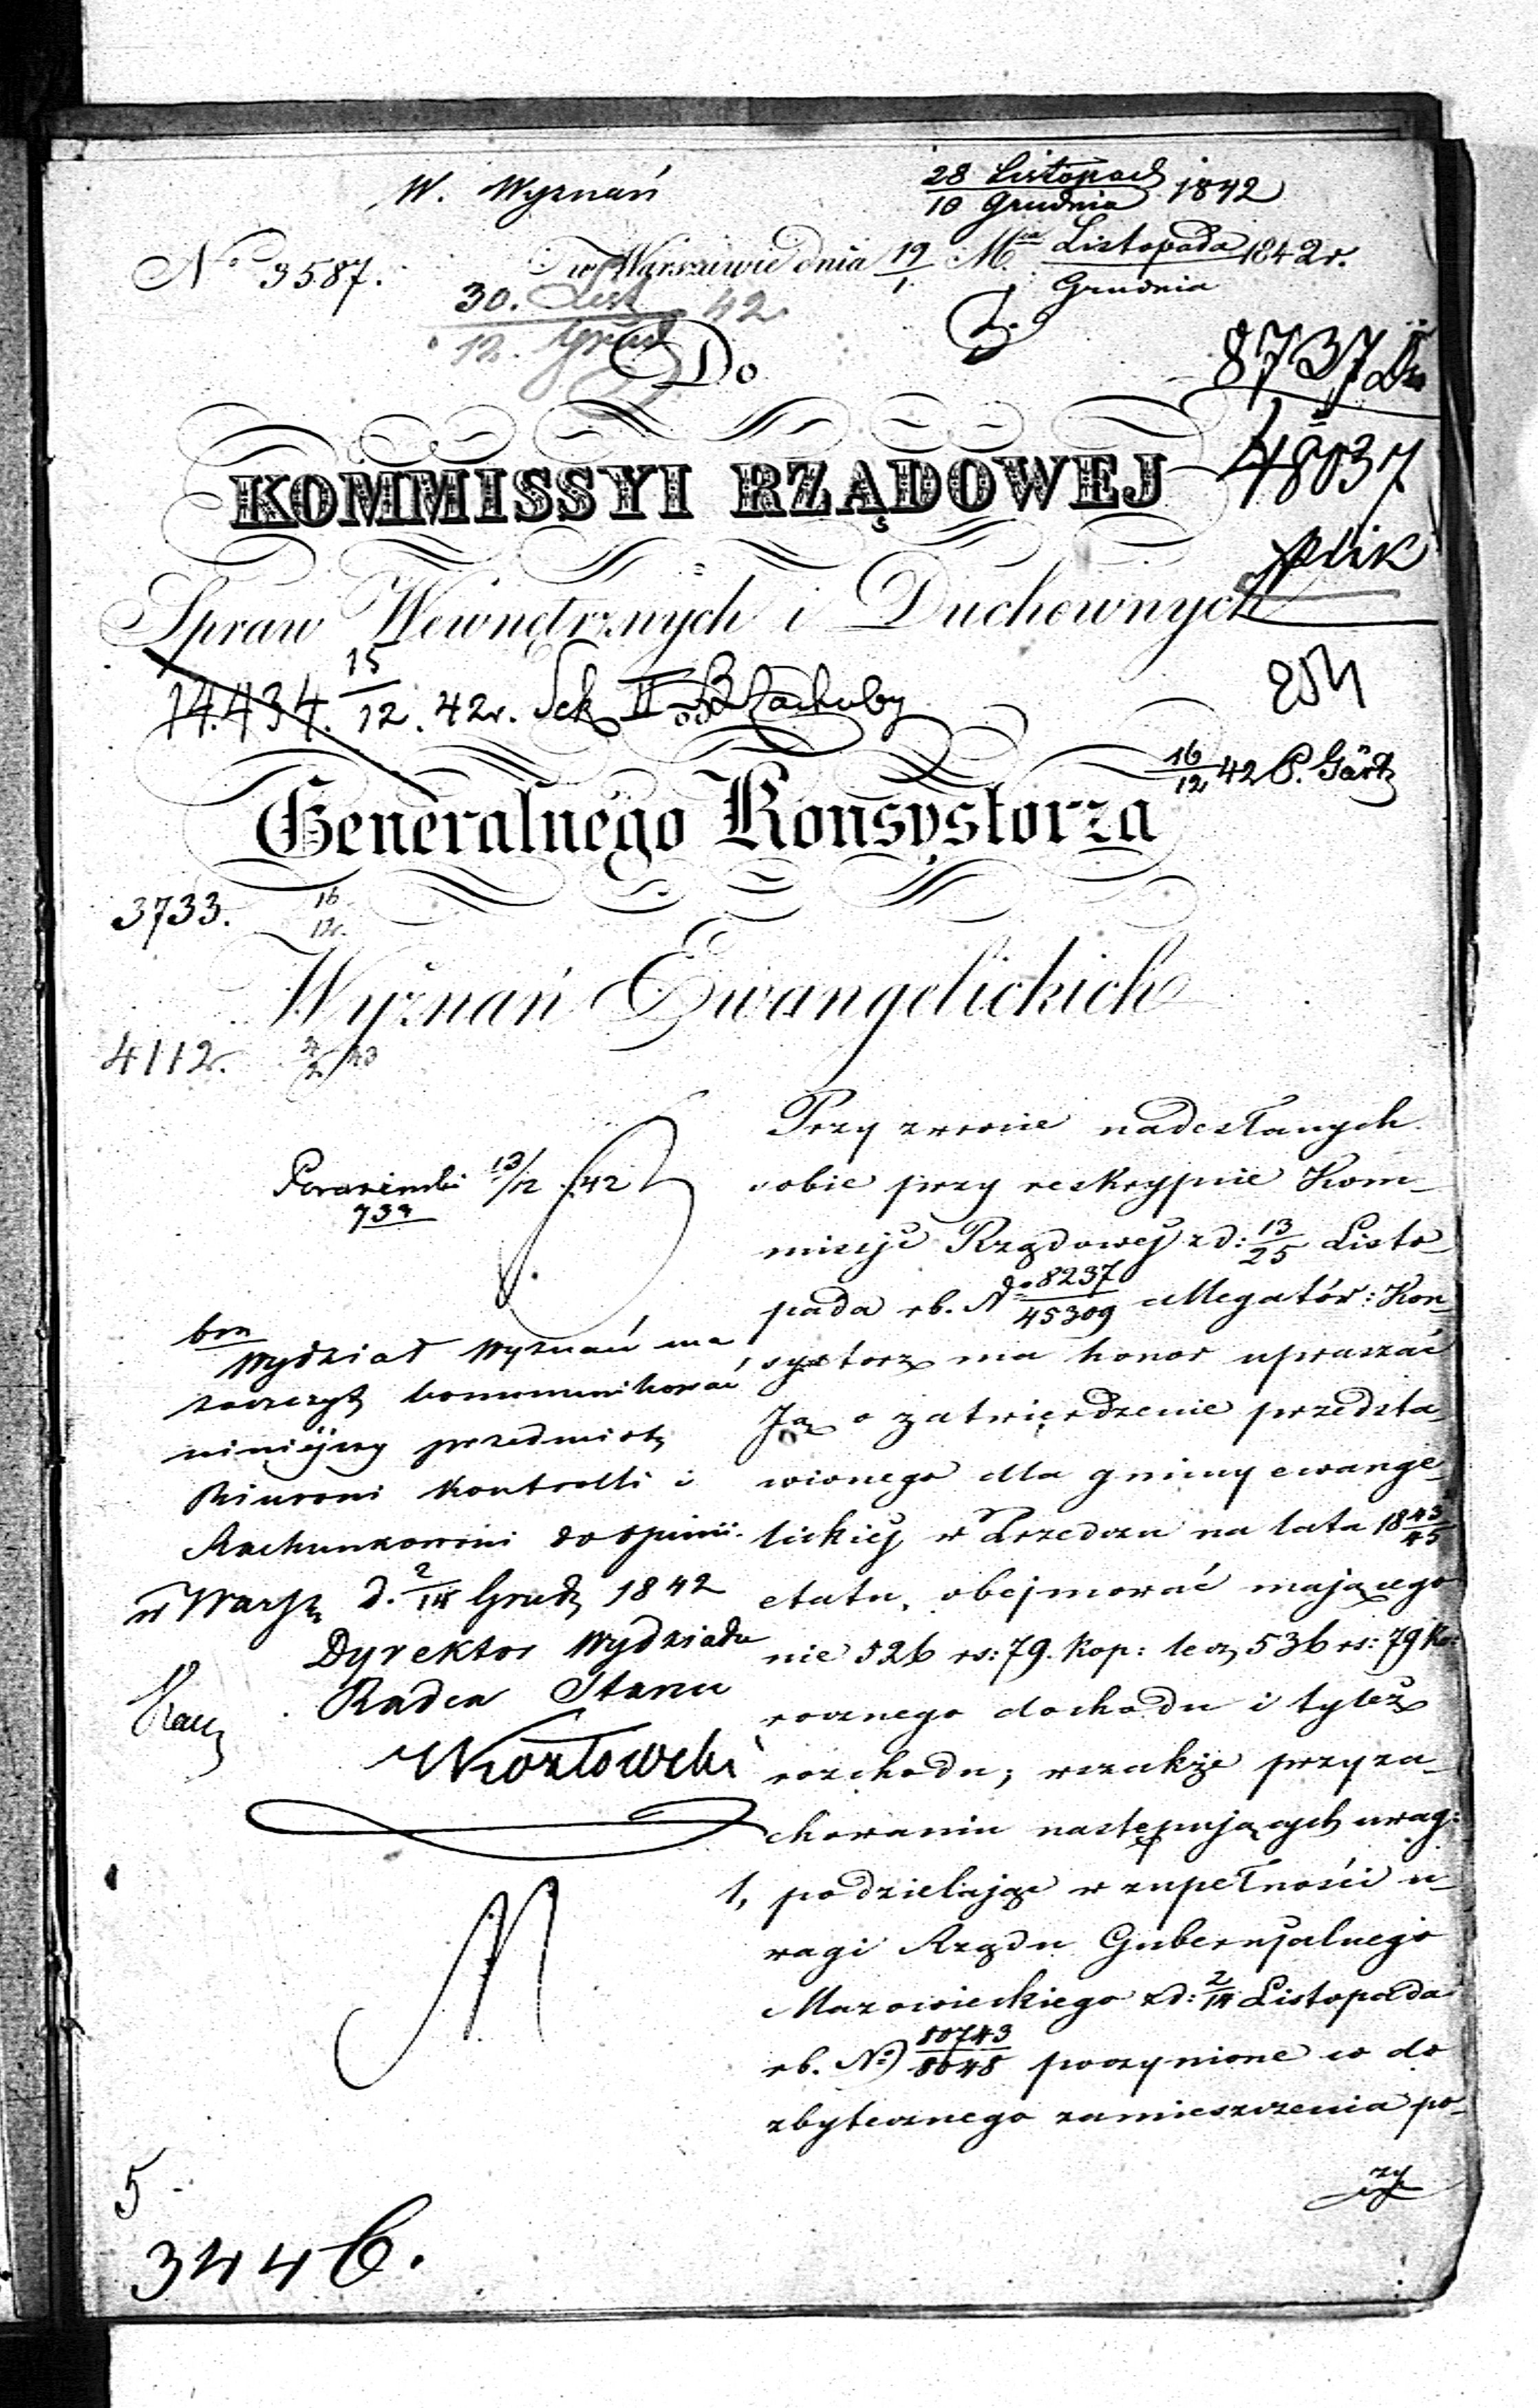 W. Wyznań
28 Listopad 1842
10 Grudnia
No 3587.
w Warszawie dnia 19/1 Mca Listopada 1842 r.
Grudnia
30. List 42
12. Grud
Do
8737
48037
plik
KOMMISSYI RZĄDOWEJ
Spraw Wewnętrznych i Duchownych
14.434. 15/12. 42r. Sek II
254
16/12 42 P. Gärtz
Generalnego Konsystorza
3733. 16/12
Wyznań Ewangelickich
4112. 4/2 43
13/12 42
Przy zwrocie nadesłanych
sobie przy reskrypcie Kom-
missyi Rządowej z d: 13/25 Listo-
pada rb. No 8237/45309 allegatów: Kon-
systorz ma honor upraszać
Ją o zatwierdzenie przedsta-
wionego dla gminy ewange-
lickiej w Przedczu na lata 1843/45
etatu, obejmować mającego
nie 526 rs: 79. kop: lecz 536 rs: 79 ko:
rocznego dochodu i tyleż
rozchodu; wszakże przy za-
chowaniu następujących uwag:
1, podzielając w zupełności u-
wagi Rządu Gubernjalnego
Mazowieckiego z d: 2/14 Listopada
rb. No) 80743/8048 poczynione co do
zbytecznego zamieszczenia po-
zy
brm
Wydział Wyznań ma
zaszczyt kommunikować
niniejszy przedmiot
Biurowi Kontrolli i
Rachunkowości do opinii.
w Warsz d. 2/14 Grud 1842
Dyrektor Wydziału
Radca Stanu
Kozłowski
5
3446.